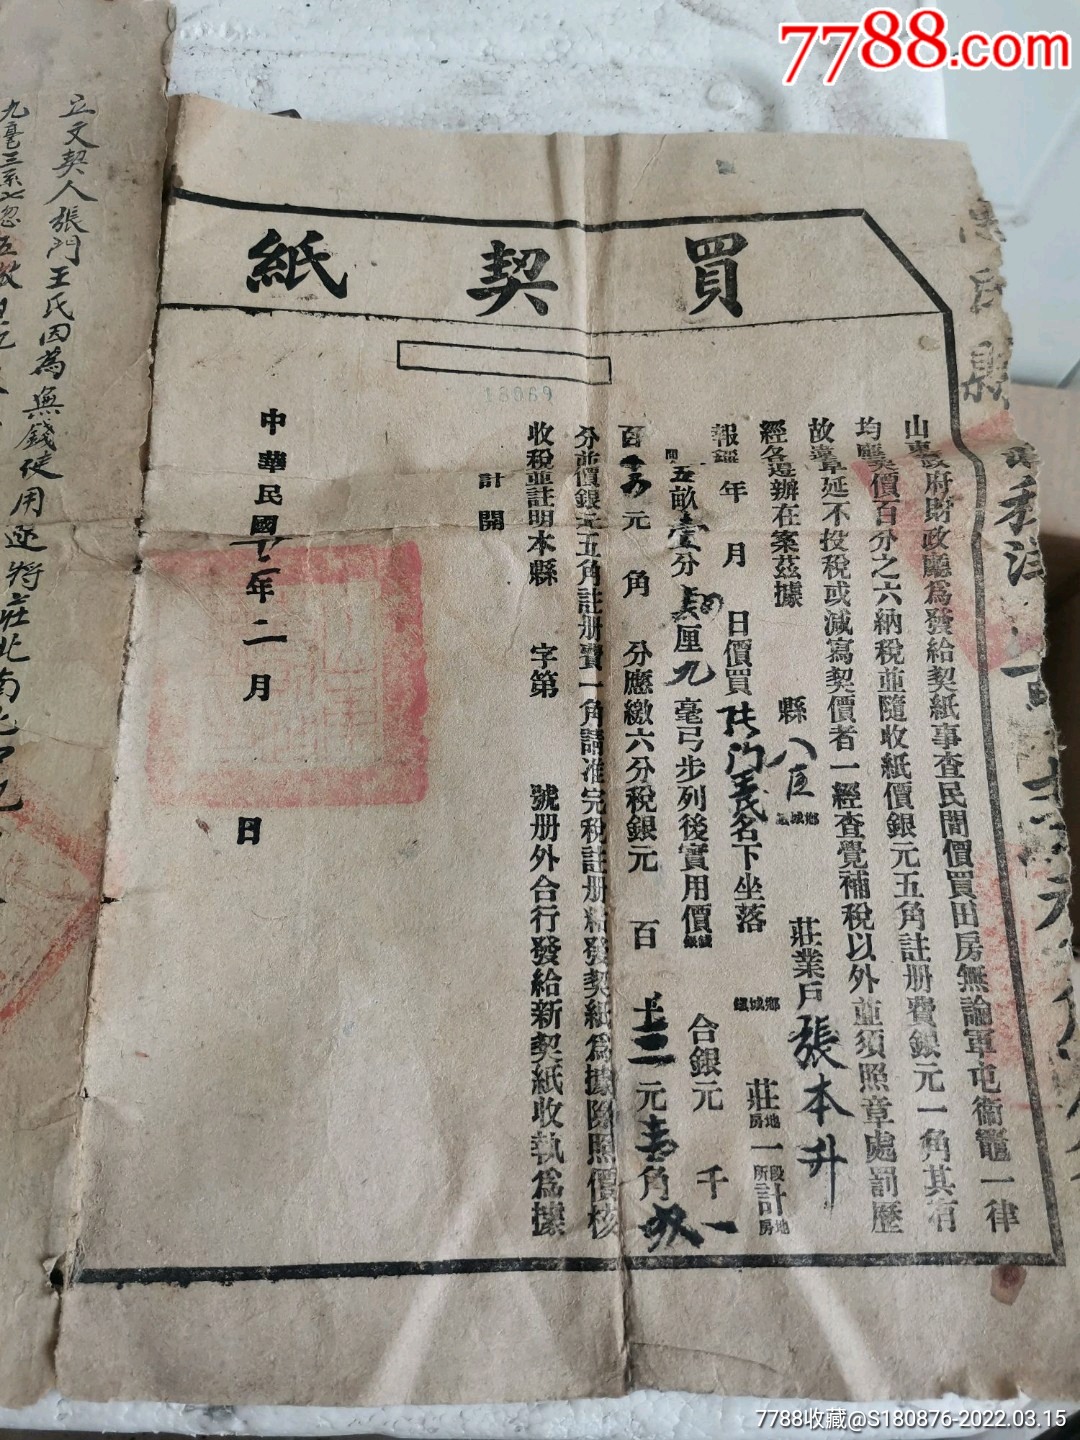 7788.com
買契紙
18069
山東政府財政廳爲發給契紙事查民間價買田房無論軍屯衛竈一律
均應契價百分之六納稅並隨收紙價銀元五角註册費銀元一角其有
故違章延不投稅或減寫契價者一經查覺補稅以外並須照章處罰歷
經各遵辦在案茲據 縣 八區 鄉城鎮 莊業戶張本升
報經 年 月 日價買張門王氏名下坐落 鄉城鎮 莊地房一段所計地房
五畝壹分 厘九毫弓步列後實用價銀錢 合銀元 千一
百 元 角 分應繳六分稅銀元 百 十二元壹角
分並價銀元五角註册費一角請准完稅註册粘發契紙爲據除照價核
收稅並註明本縣 字第 號册外合行發給新契紙收執爲據
計開
中華民國十 年二月 日
立文契人張門王氏因為無錢使用逐將莊北南北
九毫三系七忽五
7788收藏@S180876-2022.03.15